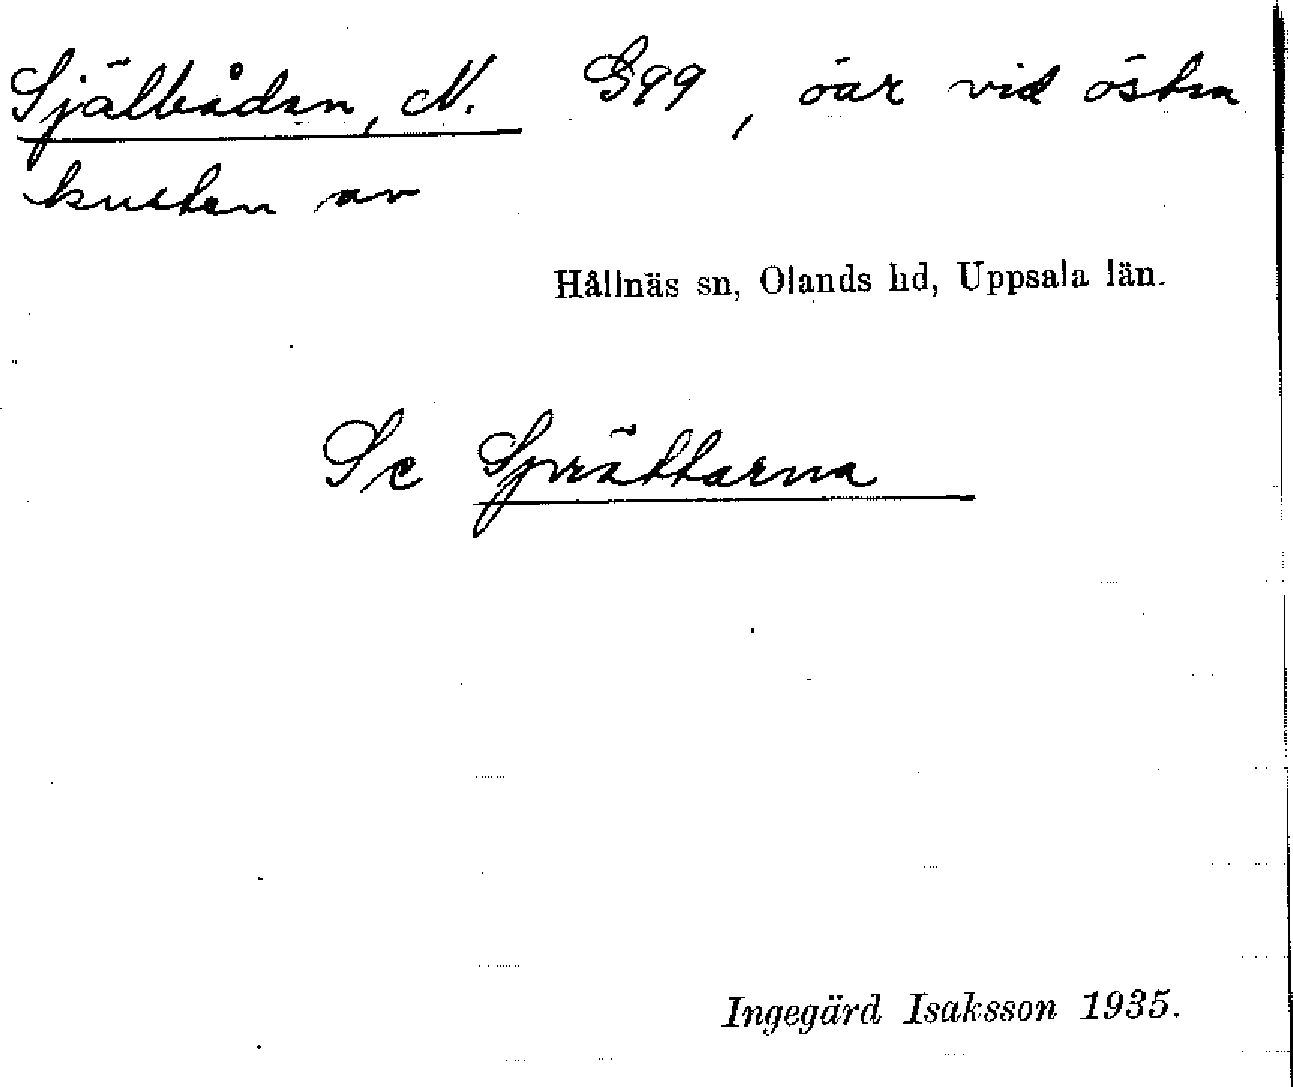 Själbådan, N. G99, öar vid östra
kusten av
Hållnäs sn, Olands hd, Uppsala län.
Se Sprättarna
Ingegärd Isaksson 1935.